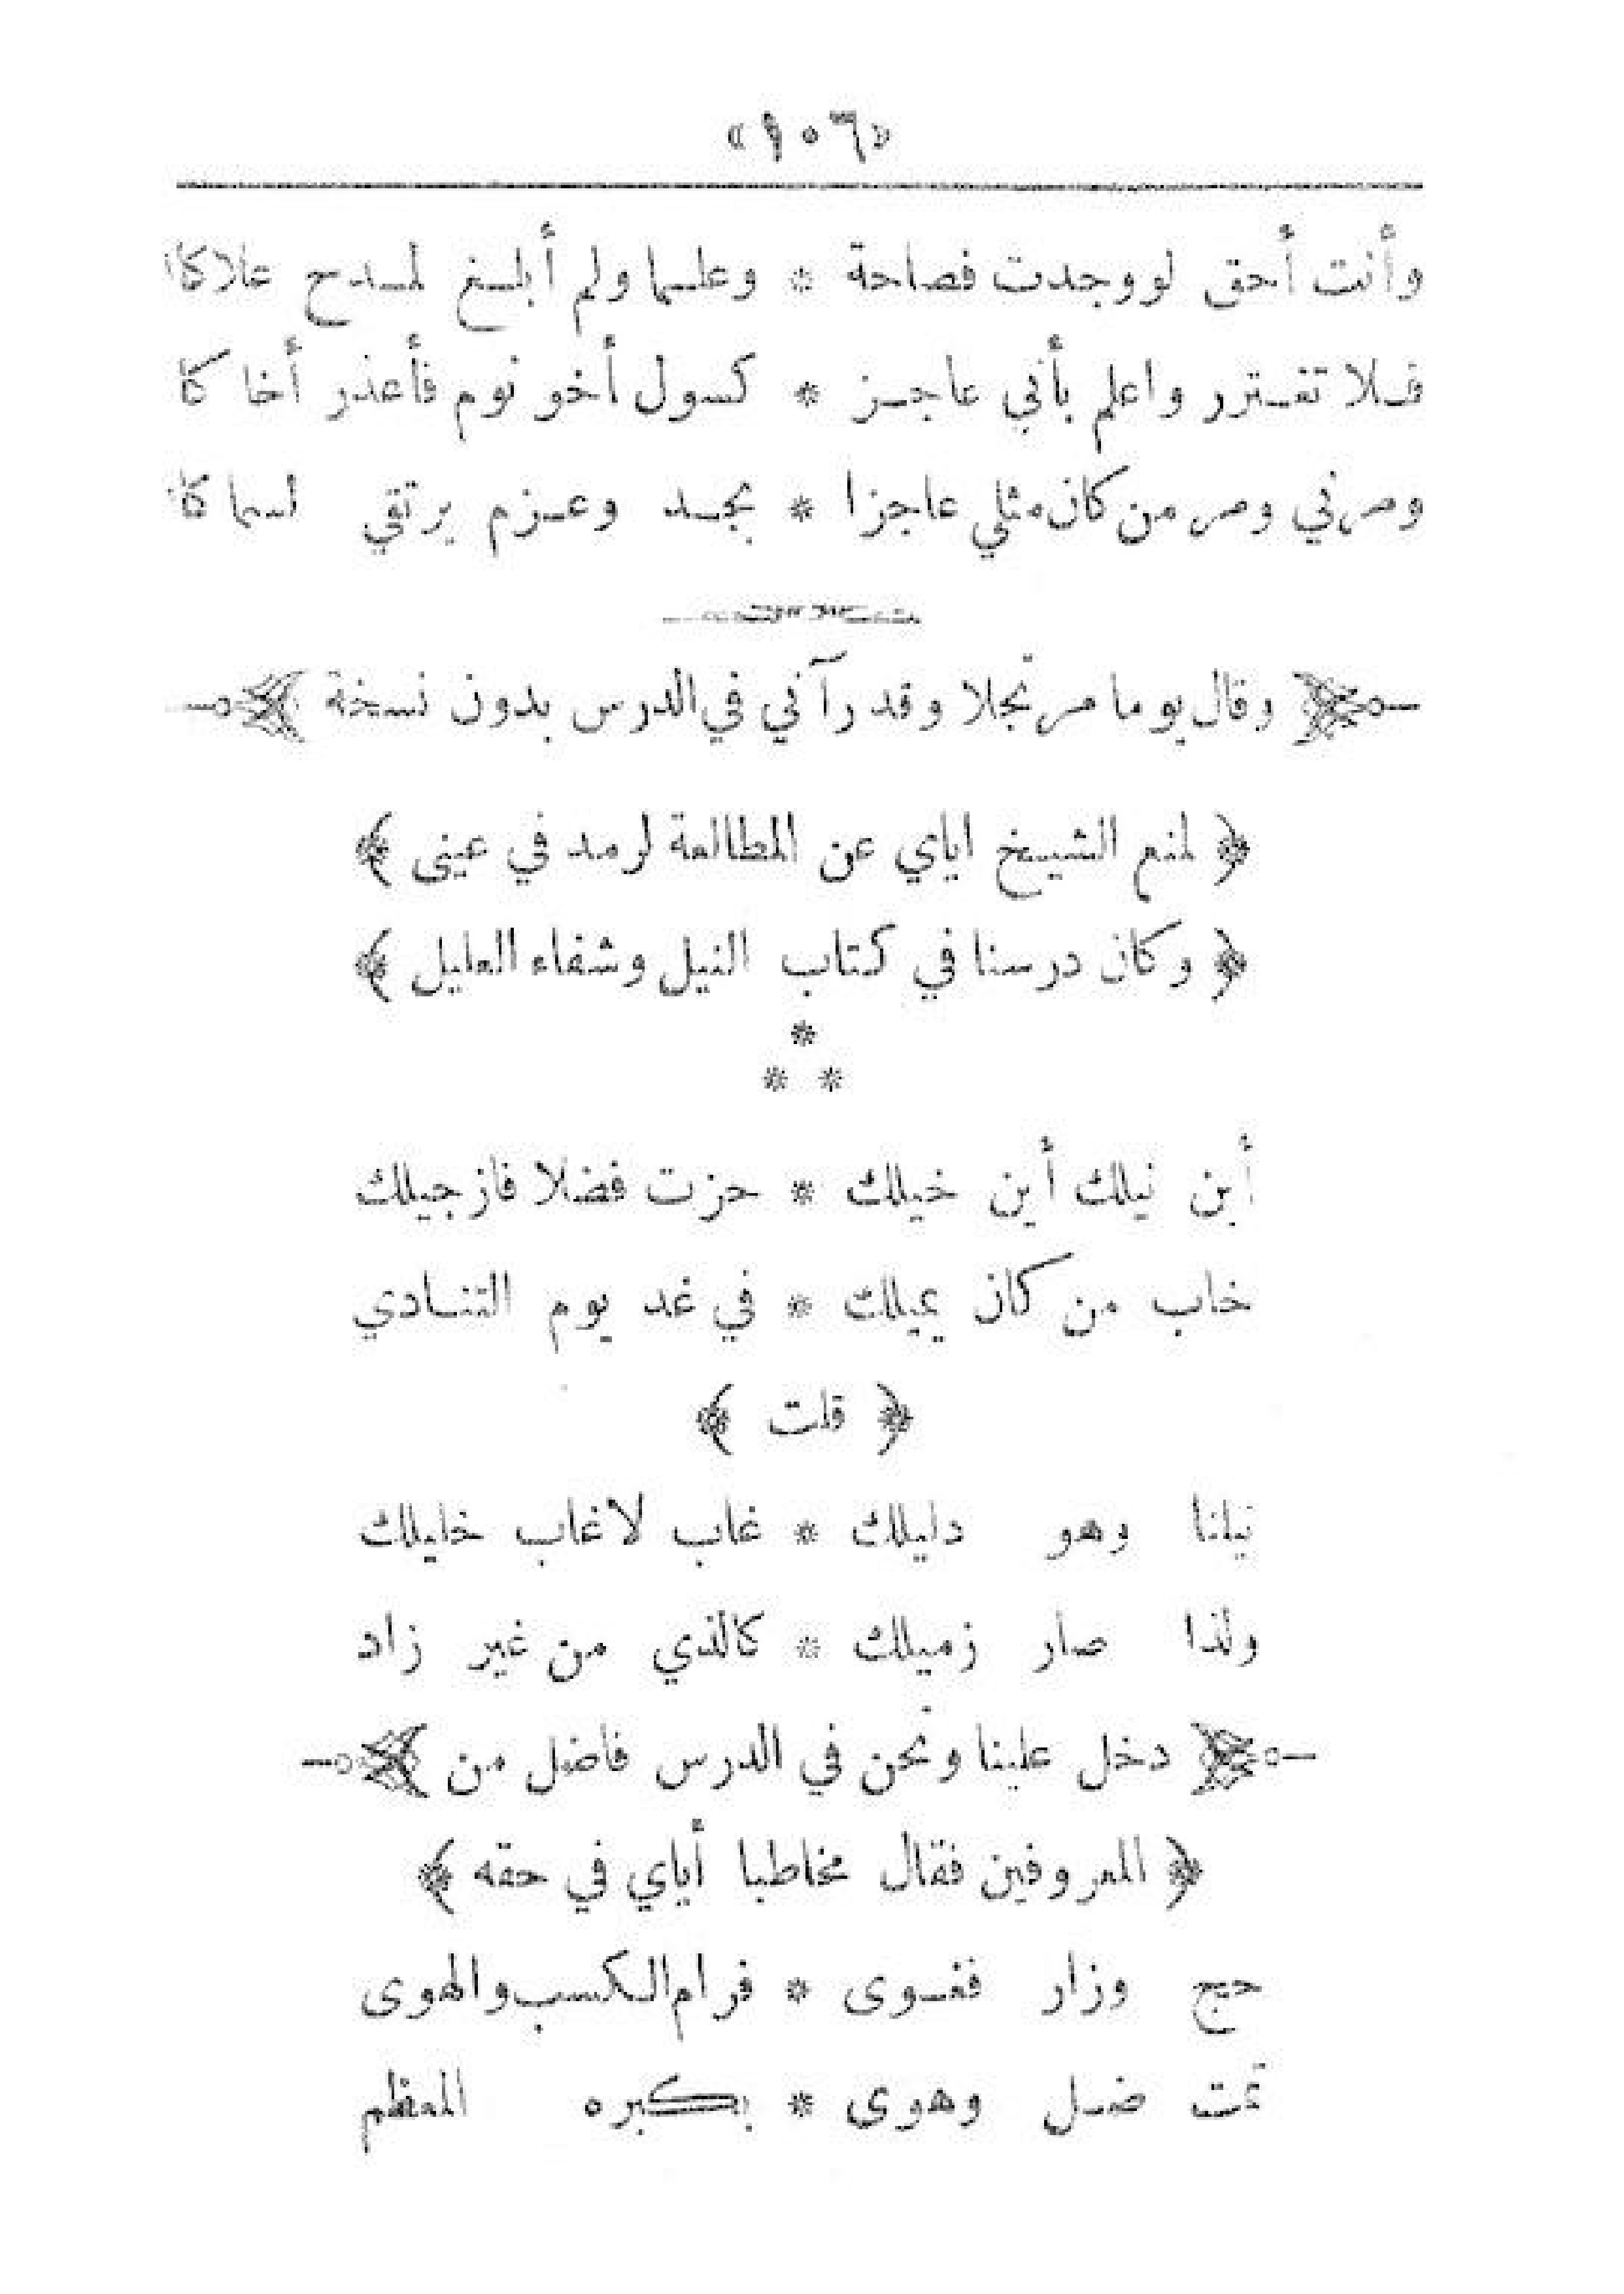 «١٠٦»
وأنت أحق لو وجدت فصاحة * وعلما ولم أبلغ لمدح علاكا
فلا تغترر واعلم بأني عاجز * كسول أخو نوم فأعذر أخا كا
ومرني ومر من كان مثلي عاجزا * بجد وعزم يرتقي لسما كا
وقال يوما مرتجلا وقد رآني في الدرس بدون نسخة
﴿ لمنع الشيخ اياي عن المطالعة لرمد في عينى ﴾
﴿ وكان درسنا في كتاب النيل وشفاء العليل ﴾
*
* *
أين نيلك أين خيلك * حزت فضلا فاز جيلك
خاب من كان يميلك * في غد يوم التنادي
﴿ قلت ﴾
نيلنا وهو دليلك * غاب لاغاب خليلك
ولذا صار زميلك * كالذي من غير زاد
دخل علينا ونحن في الدرس فاضل من
﴿ المعروفين فقال مخاطبا أياي في حقه ﴾
حج وزار فغوى * فرام الكسب والهوى
تمت ضل وهوى * بكبره المعظم